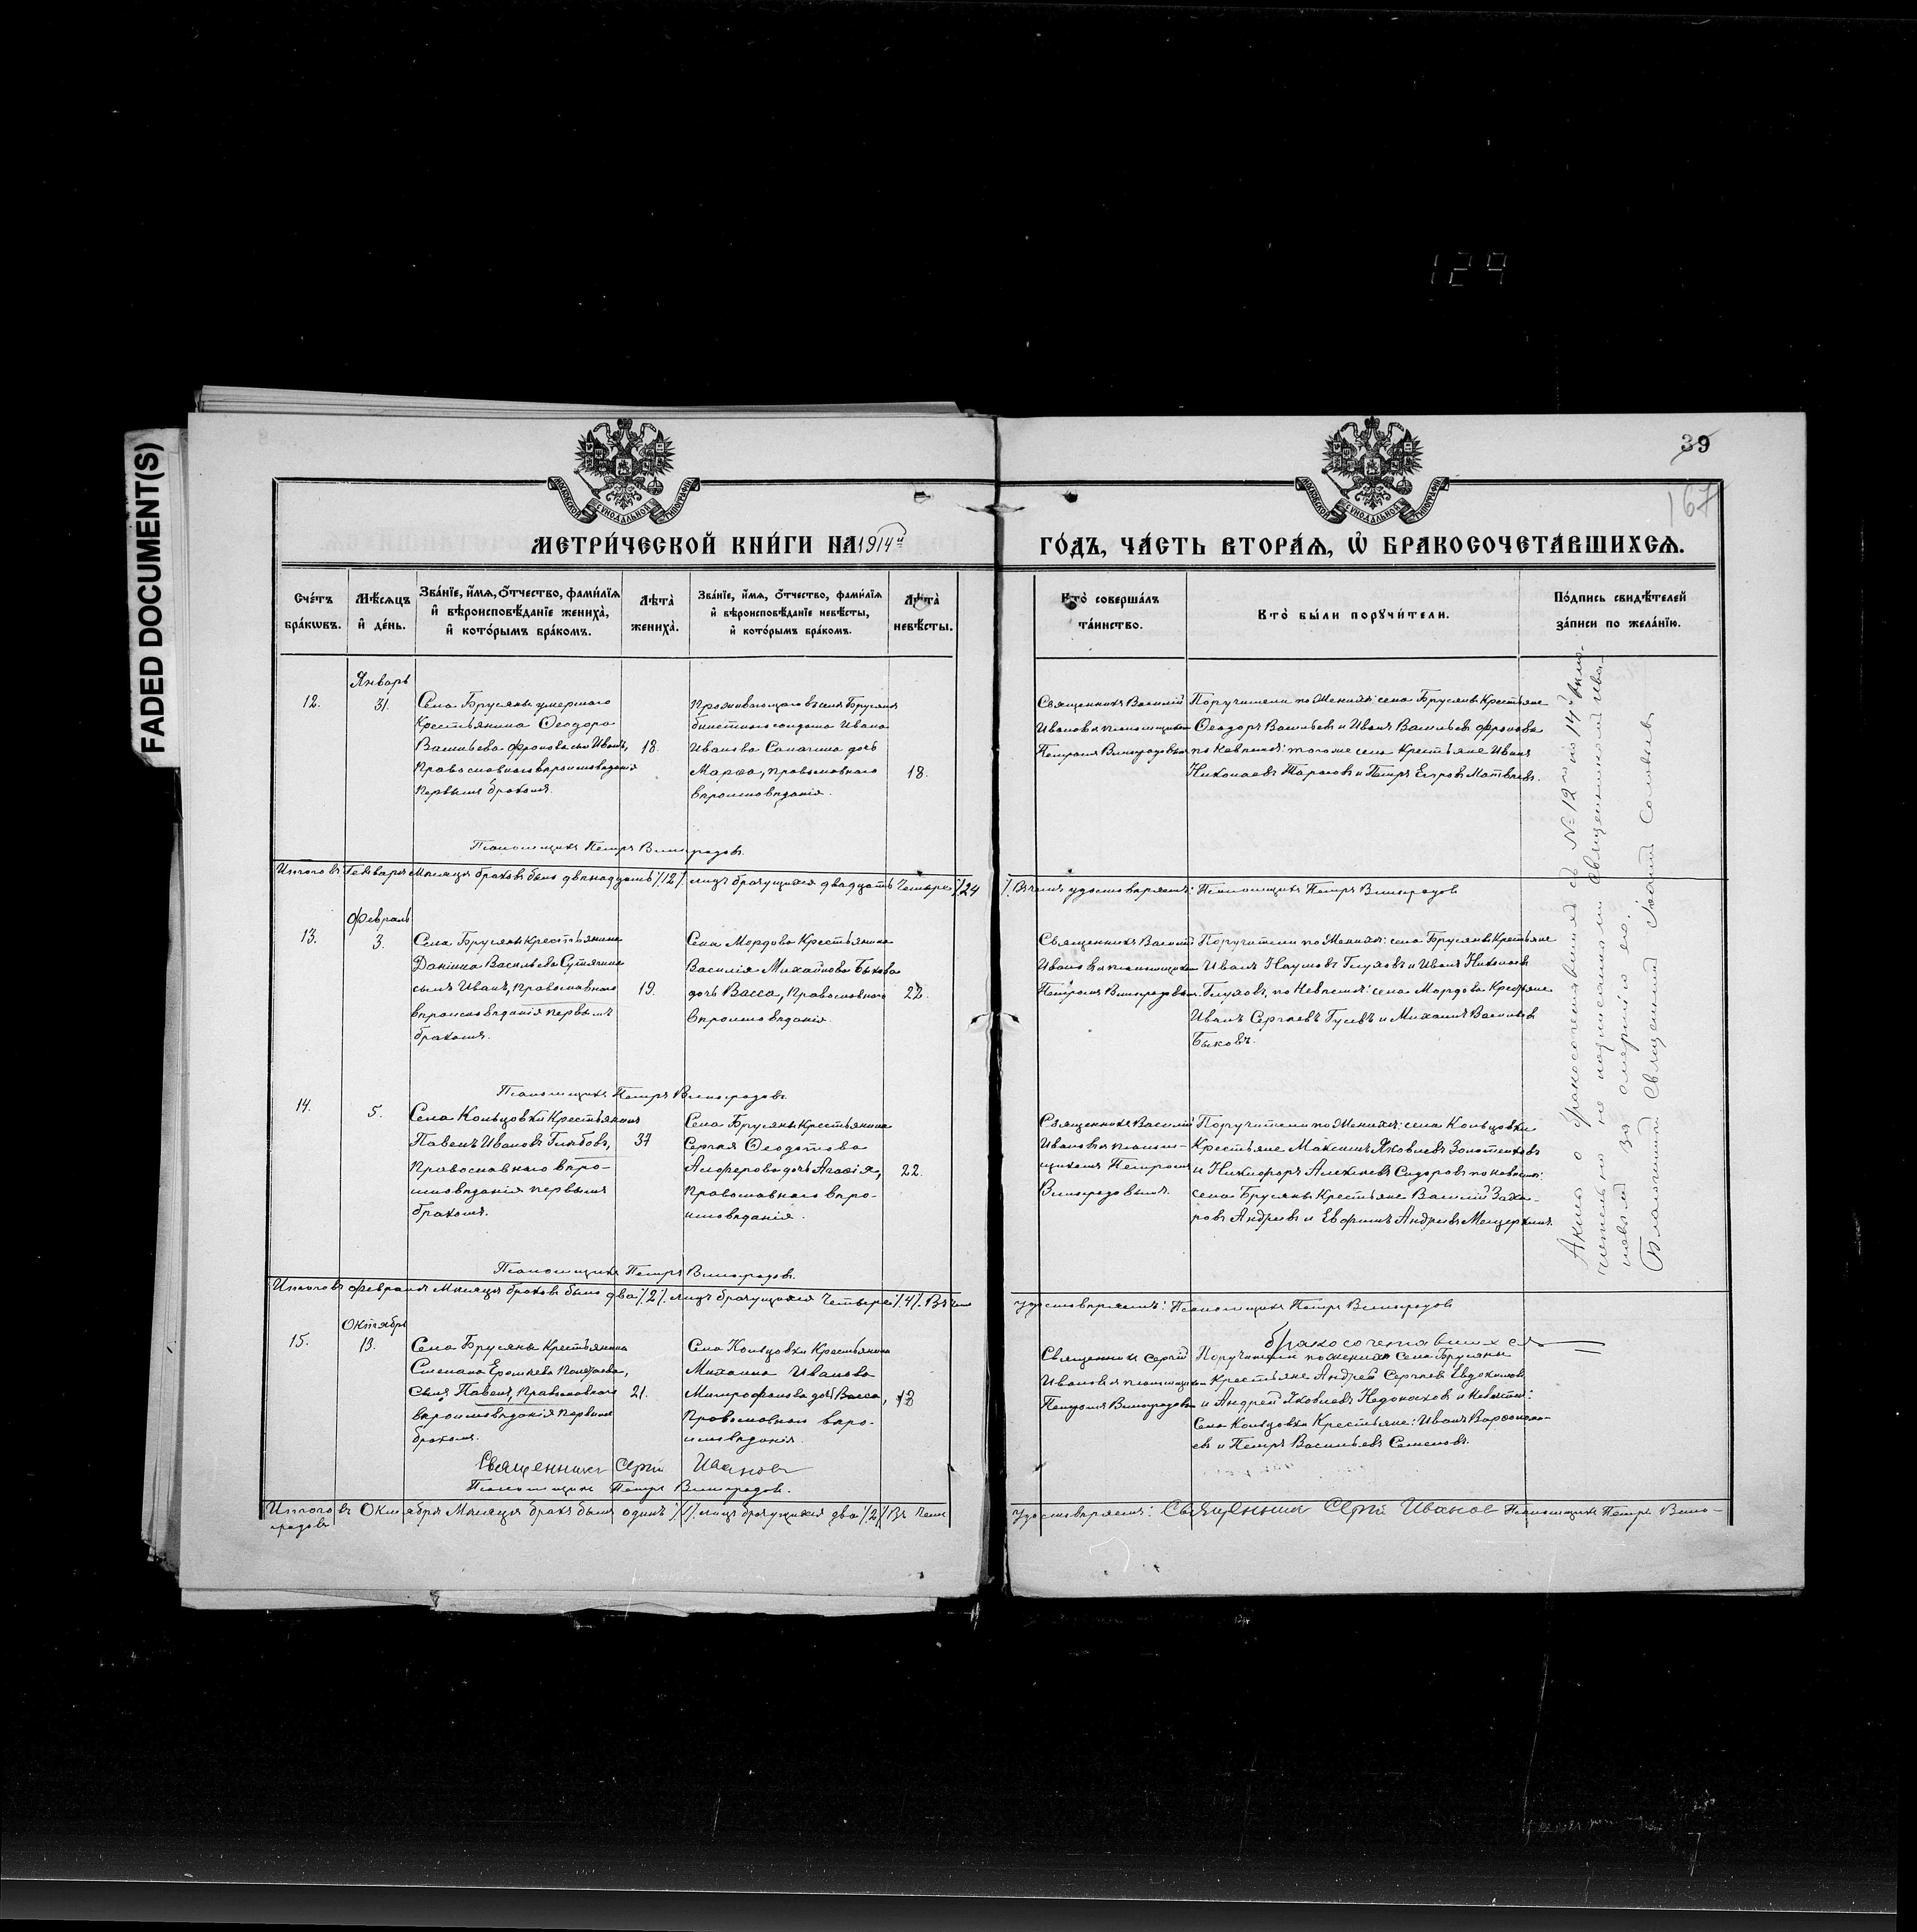 FADED DOCUMENT(S)
129
39
167
МОСКОВСКОЙ СѴНОДАЛЬНОЙ ТИПОГРАФІИ
МОСКОВСКОЙ СѴНОДАЛЬНОЙ ТИПОГРАФІИ
МЕТРИ́ЧЕСКОЙ КНИ́ГИ НА 1914й ГО́ДЪ, ЧА́СТЬ ВТОРА́Ѧ, Ѡ БРАКОСОЧЕТА́ВШИХСѦ.
Сче́тъ бра́кѡвъ.
Мѣ́сѧцъ и҆ де́нь.
Зва́нїе, и҆́мѧ, о҆́тчество, фами́лїѧ
и҆ вѣроисповѣ́данїе жениха̀,
и҆ кото́рымъ бра́комъ.
Лѣта̀ жениха̀.
Зва́нїе, и҆́мѧ, о҆́тчество, фами́лїѧ
и҆ вѣроисповѣ́данїе невѣ́сты,
и҆ кото́рымъ бра́комъ.
Лѣта̀ невѣ́сты.
Кто̀ соверша́лъ та́инство.
Кто̀ бы́ли порꙋчи́тели.
По́дпись свидѣ́телей за́писи по жела́нїю.
Январь
12.
31.
Села Брусяны умершаго
Крестьянина Ѳеодора
Васильева Фролова сынъ Иванъ,
Православнаго вѣроисповѣданія
Первымъ бракомъ.
18.
Проживающаго въ селѣ Брусяны
солдата Ивана
Иванова дочь
Марѳа, православнаго
вѣроисповѣданія.
18.
Священникъ Василій
Ивановъ и псаломщикъ
Петромъ Виноградовымъ
Поручители по Женихѣ: села Брусянъ Крестьяне
Ѳеодоръ Васильевъ и Иванъ Васильевъ Фроловы
по Невѣстѣ: того же села Крестьяне Иванъ
Николаевъ Тарасовъ и Петръ Егоровъ Матвѣевъ.
Псаломщикъ Петръ Виноградовъ.
Итого въ Генварѣ Мѣсяцѣ браковъ было двѣнадцать /12/. лицъ брачущихся двадцать Четыре /24/. Въ чемъ удостовѣряемъ: Псаломщикъ Петръ Виноградовъ
Февраль
13.
3.
Села Брусяны Крестьянина
Даніила Васильева Сутягина
сынъ Иванъ, православнаго
вѣроисповѣданія первымъ
бракомъ.
19.
Села Мордово Крестьянина
Василія Михайлова Быкова
дочь Васса, Православнаго
вѣроисповѣданія.
22.
Священникъ Василій
Ивановъ и псаломщикомъ
Петромъ Виноградовымъ.
Поручители по Женихѣ: села Брусяны Крестьяне
Иванъ Наумовъ Глуховъ и Иванъ Николаевъ
Глуховъ, по Невѣстѣ: села Мордова Крестьяне
Иванъ Сергѣевъ Гусевъ и Михаилъ Васильевъ
Быковъ.
Псаломщикъ Петръ Виноградовъ.
14.
5.
Села Кольцовки Крестьянинъ
Павелъ Ивановъ Глѣбовъ,
Православнаго вѣро-
исповѣданія первымъ
бракомъ.
37
Села Брусяны Крестьянина
Сергѣя Ѳеодотова
Алферова дочь Агаѳія,
Православнаго вѣро-
исповѣданія.
22.
Священникъ Василій
Ивановъ и псалом-
щикомъ Петромъ
Виноградовымъ.
Поручители по Женихѣ: села Кольцовки
Крестьяне Максимъ Яковлевъ Золотенковъ
и Никифоръ Алексѣевъ Сидоровъ по невѣстѣ:
села Брусяны Крестьяне Василій Заха-
ровъ Андреевъ и Ефимъ Андреевъ Мещеркинъ.
Псаломщикъ Петръ Виноградовъ.
Итого въ Февралѣ Мѣсяцѣ браковъ было два /2/. лицъ брачущихся Четыре /4/. Въ чемъ удостовѣряемъ: Псаломщикъ Петръ Виноградовъ
Актъ о бракосочетавшихся съ № 12го по 14й вклю-
чительно не подписанъ Священникомъ Ива-
новымъ за смертію его.
Благочинный Священникъ Іоаннъ Соловьевъ
Октябрь
15.
13.
Села Брусяны Крестьянина
Степана Еремѣева
сынъ Павелъ, Православнаго
вѣроисповѣданія первымъ
бракомъ.
21.
Села Кольцовки Крестьянина
Михаила Иванова
Митрофанова дочь Васса,
Православнаго вѣро-
исповѣданія.
18
бракосочетавшихся
Священникъ Сергій
Ивановъ и псаломщикомъ
Петромъ Виноградовымъ
Поручители по женихѣ Села Брусяны
Крестьяне Андрей Сергѣевъ Евдокимовъ
и Андрей Яковлевъ и Невѣстѣ:
Села Кольцовки Крестьяне: Иванъ Варѳоломе-
евъ и Петръ Васильевъ Семеновъ.
Священникъ Сергій Ивановъ
Псаломщикъ Петръ Виноградовъ.
Итого въ Октябрѣ Мѣсяцѣ бракъ былъ одинъ /1/. лицъ брачущихся два /2/. Въ чемъ удостовѣряемъ: Священникъ Сергій Ивановъ Псаломщикъ Петръ Вино-
градовъ